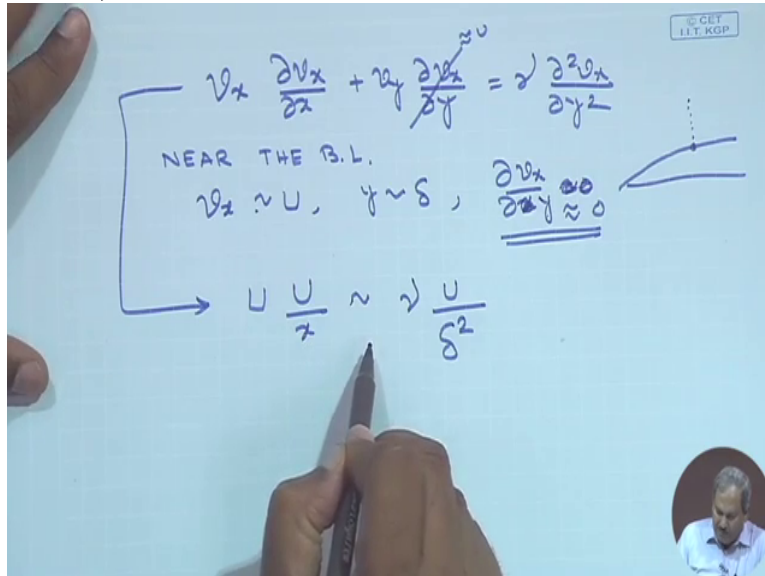 © CET
I.I.T. KGP
≈ 0
vₓ ∂vₓ/∂x + v_y ∂vₓ/∂y = ν ∂²vₓ/∂y²
NEAR THE B.L.
vₓ ~ U, y ~ δ, ∂vₓ/∂y ≈ 0
U U/x ~ ν U/δ²